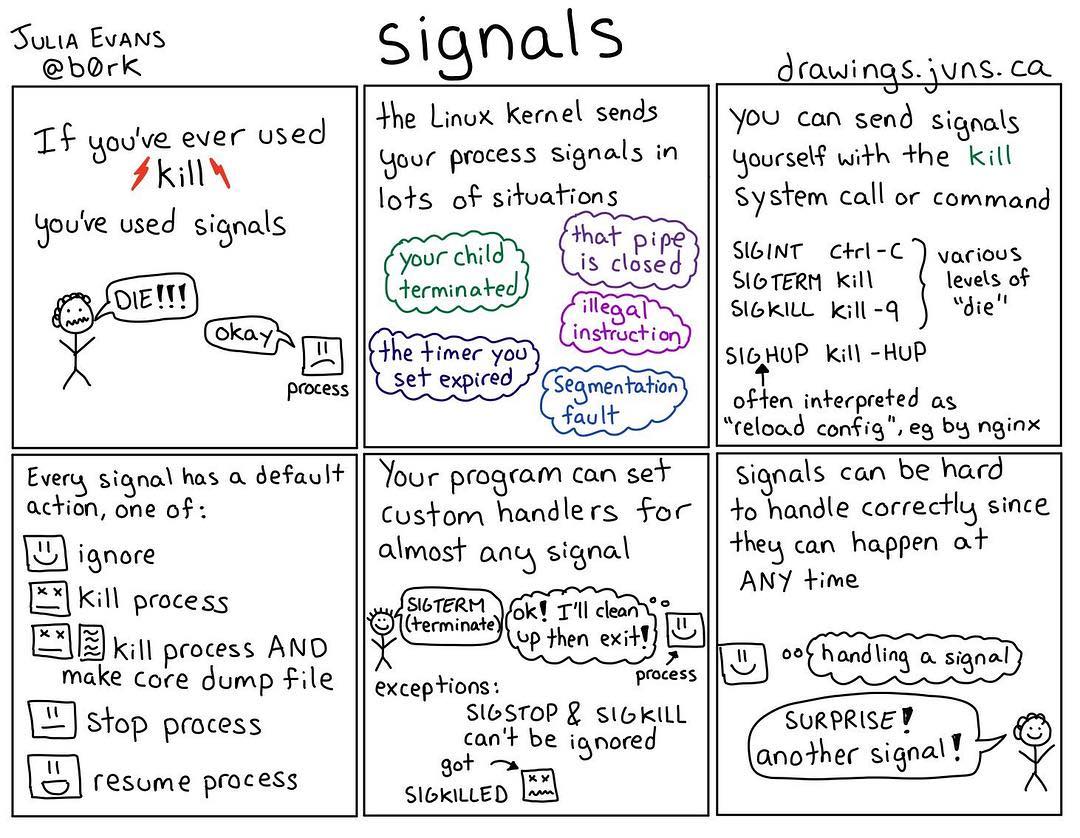 JULIA EVANS
@b0rk
signals
drawings.jvns.ca
If you've ever used
kill
you've used signals
DIE!!!
okay
process
the Linux kernel sends
your process signals in
lots of situations
your child
terminated
that pipe
is closed
illegal
instruction
the timer you
set expired
Segmentation
fault
you can send signals
yourself with the kill
system call or command
SIGINT ctrl-C
SIGTERM kill
SIGKILL kill -9
various
levels of
"die"
SIGHUP kill -HUP
often interpreted as
"reload config", eg by nginx
Every signal has a default
action, one of:
ignore
kill process
kill process AND
make core dump file
stop process
resume process
Your program can set
custom handlers for
almost any signal
SIGTERM
(terminate)
ok! I'll clean
up then exit!
process
exceptions:
SIGSTOP & SIGKILL
can't be ignored
got
SIGKILLED
signals can be hard
to handle correctly since
they can happen at
ANY time
handling a signal
SURPRISE!
another signal!